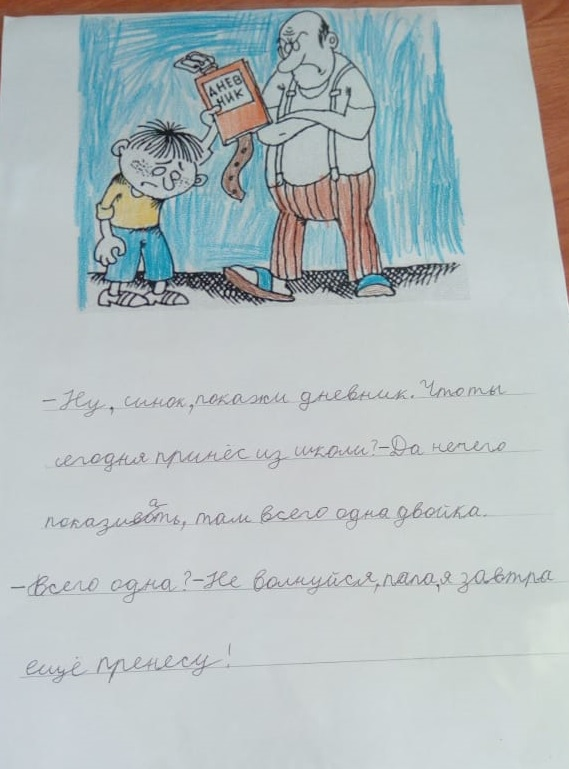 ДНЕВ
НИК
- Ну, синок, покажи дневник. Что ты
сегодня принёс из школи? - Да нечего
показивать, там всего одна двойка.
- Всего одна? - Не волнуйся, папа, я завтра
ещё пренесу!